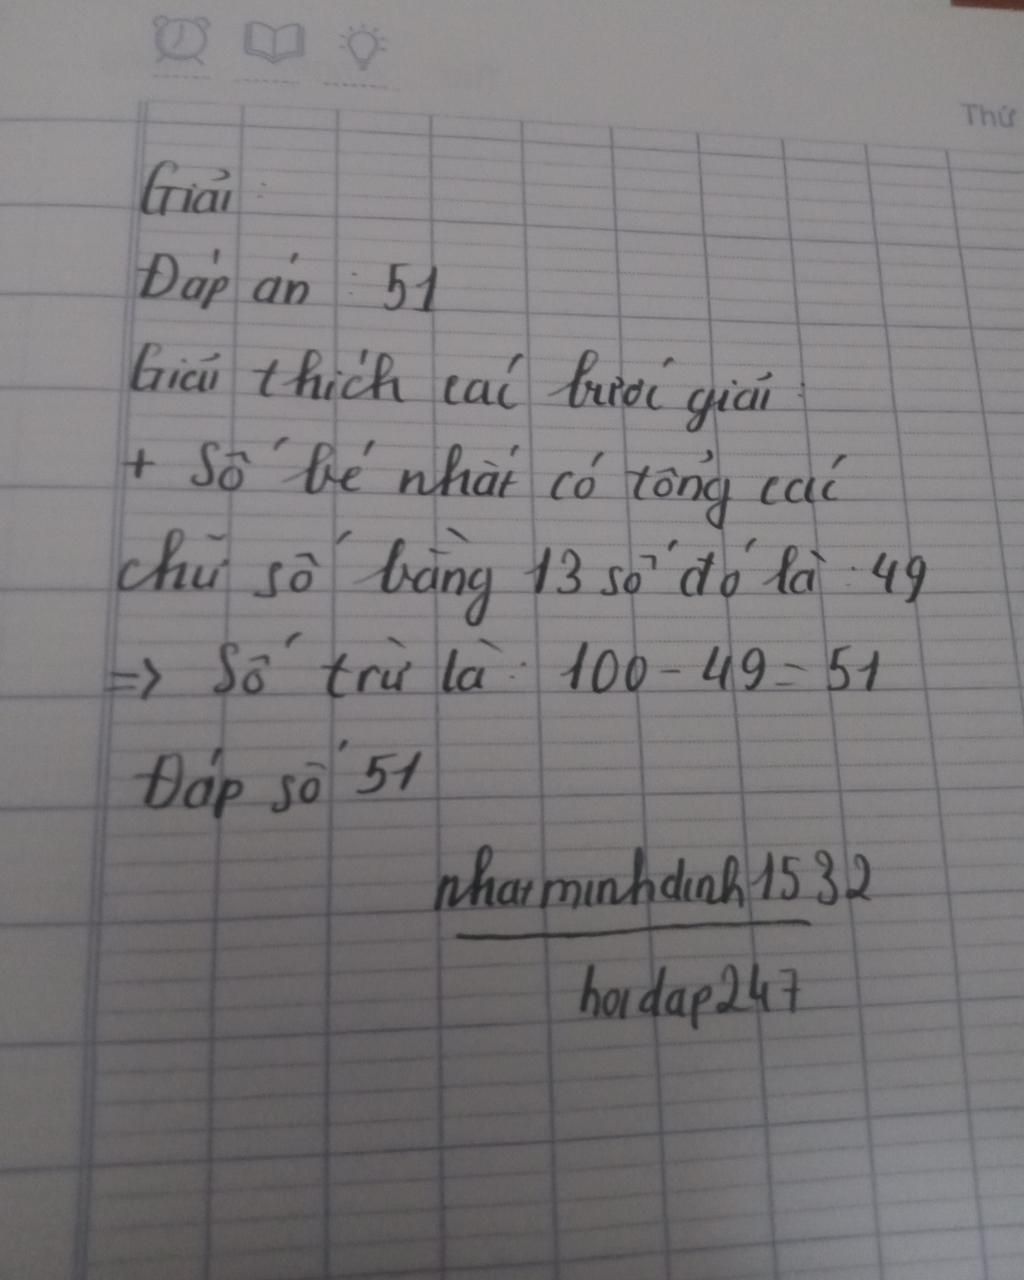 Thứ
Giải:
Đáp án: 51
Giải thích các bước giải:
+ Số bé nhất có tổng các
chữ số bằng 13 số đó là: 49
=> Số trừ là: 100 - 49 = 51
Đáp số 51
nhatminhdinh1532
hoidap247